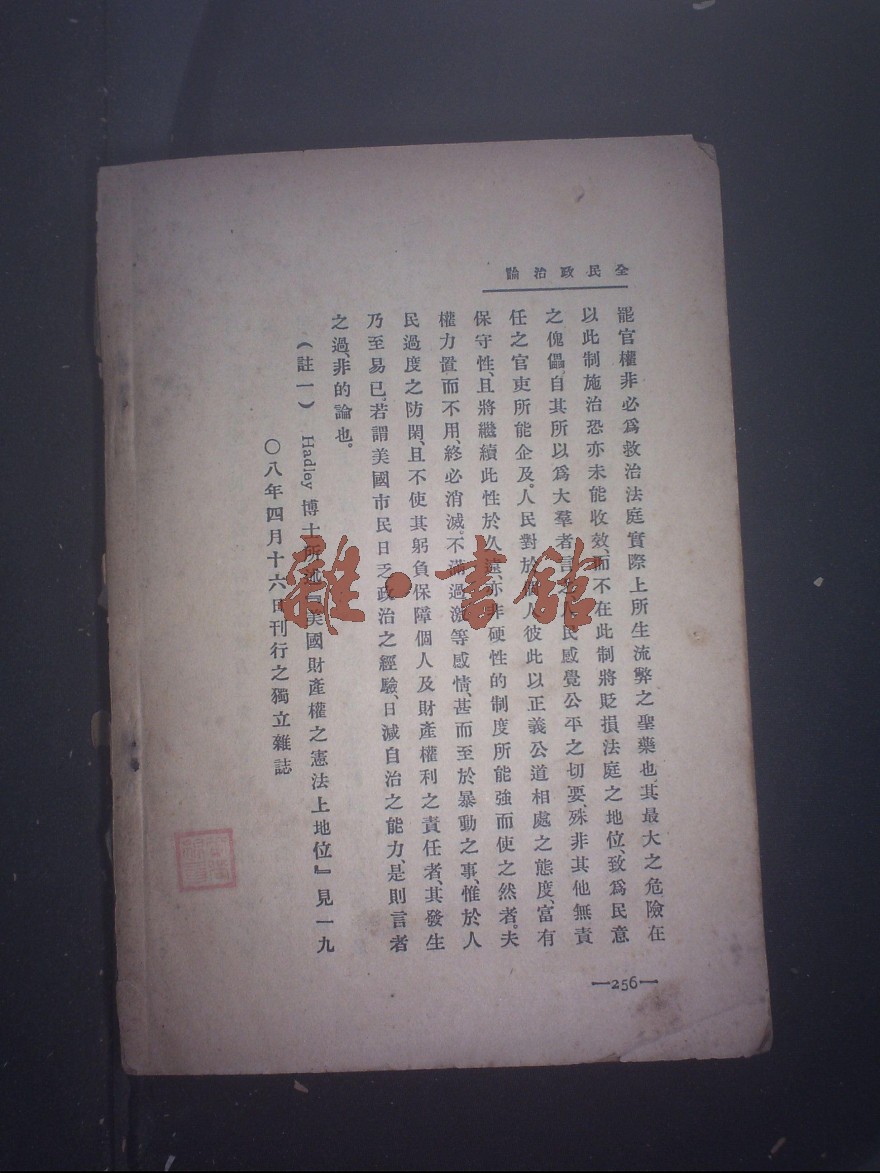 全民政治論
罷官權非必爲救治法庭實際上所生流弊之聖藥也、其最大之危險在
以此制施治恐亦未能收效、而不在此制將貶損法庭之地位、致爲民意
之傀儡。自其所以爲大羣者言之、人民感覺公平之切要、殊非其他無責
任之官吏所能企及。人民對於個人彼此以正義公道相處之態度、富有
保守性、且將繼續此性於久遠、亦非硬性的制度所能強而使之然者。夫
權力置而不用、終必消滅。不滿過激等感情、甚而至於暴動之事、惟於人
民過度之防閑、且不使其躬負保障個人及財產權利之責任者、其發生
乃至易已。若謂美國市民日乏政治之經驗、日減自治之能力、是則言者
之過、非的論也。
（註一） Hadley 博士所述『美國財產權之憲法上地位』見一九
〇八年四月十六日刊行之獨立雜誌
—256—
雜·書館